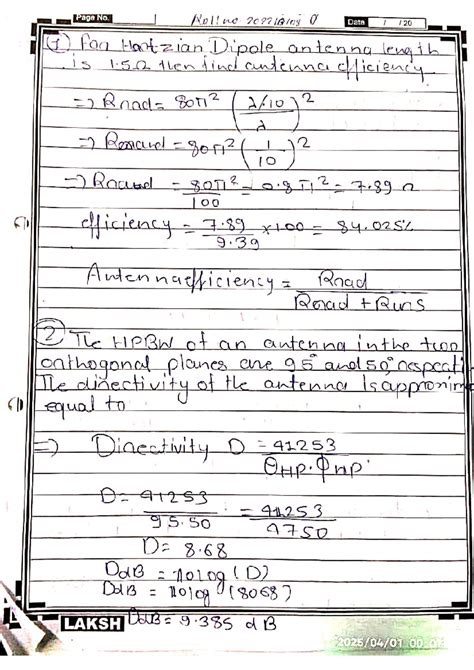 Page No.
Date / / 20
Roll no
(1) for Hertzian Dipole antenna length
is 1.5Ω then find antenna efficiency
=> Rrad = 80π² (λ/10 / λ)²
=> = 80π² (1/10)²
=> = 80π²/100 = 0.8π² = 7.89 Ω
efficiency = 7.89/9.39 x100 = 84.025%
Antenna efficiency = Rrad / Rrad +
(2) The HPBW of an antenna in the two
orthogonal planes are 95° and 50° respecti
The directivity of the antenna is approxim
equal to
=> Directivity D = 41253 / θHP.φHP.
D = 41253/95.50 = 41253/4750
D = 8.68
DdB = 10log(D)
DdB = 10log(8068)
LAKSH DdB = 9.385 dB
2025/04/01 00:0